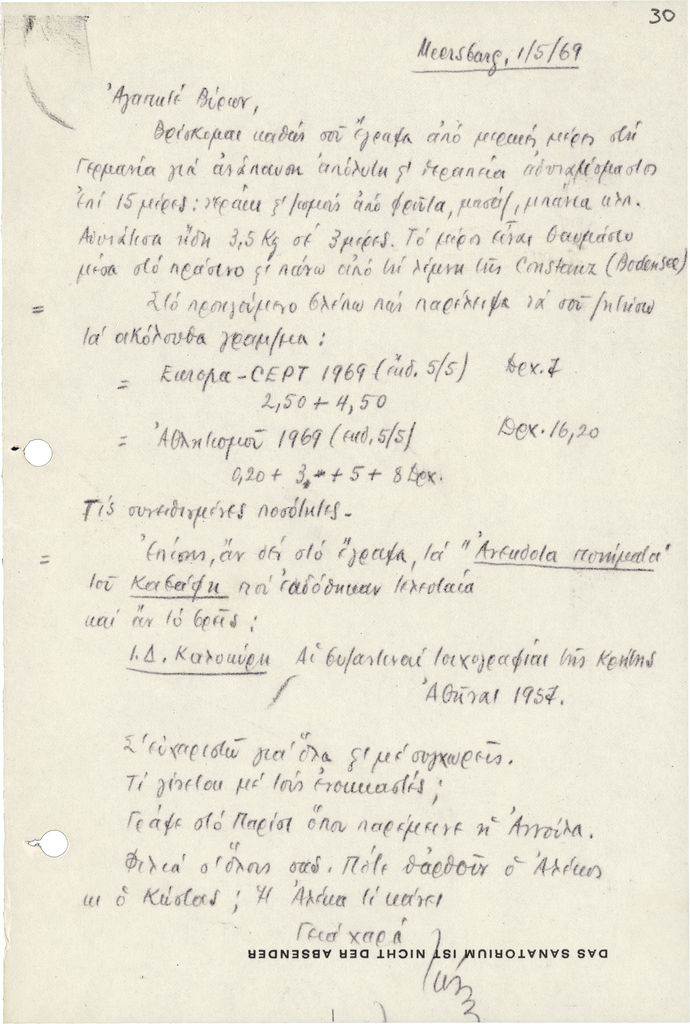 30
Meersburg, 1/5/69
Ἀγαπητέ Βύρων,
Βρίσκομαι καθώς σοῦ ἔγραφα ἀπό μερικές μέρες στή
Γερμανία γιά ἀνάπαυση ἀπόλυτη ἢ θεραπεία ἀδυνατίσματος
ἐπί 15 μέρες: νεράκι ἢ ζωμούς ἀπό φροῦτα, μασάζ, μπάνια κλπ.
Ἀδυνάτισα ἤδη 3,5 Kg σέ 3 μέρες. Τό μέρος εἶναι θαυμάσιο
μέσα στό πράσινο ἢ πάνω ἀπό τή λίμνη τῆς Constanz (Bodensee)
= Στό προηγούμενο βλέπω πώς παρέλειψα νά σοῦ ζητήσω
τά ἀκόλουθα γραμ/μα:
= Europa-CEPT 1969 (ἐκδ. 5/5) Δρχ. 7
2,50 + 4,50
= Ἀθλητισμοῦ 1969 (ἐκδ. 5/5) Δρχ. 16,20
0,20 + 3,- + 5 + 8 Δρχ.
Τίς συνειθισμένες ποσότητες.-
= Ἐπίσης, ἄν δέν στό ἔγραψα, τά "Ἀνέκδοτα ποιήματα"
τοῦ Καβάφη πού ἐκδόθηκαν τελευταῖα
καί ἄν τό βρεῖς:
Ι.Δ. Καλοκύρη Αἱ βυζαντιναί τοιχογραφίαι τῆς Κρήτης
Ἀθῆναι 1957.
Σ' εὐχαριστῶ γιά ὅλα ἢ μέ συγχωρεῖς.
Τί γίνεται μέ τούς ἐνοικιαστές;
Γράψε στό Παρίσι ὅπου παρέμεινε ἡ Ἀννούλα.
Φιλιά σ' ὅλους σας. Πότε θἀρθοῦν ὁ Ἀλέκος
κι ὁ Κώστας; Ἡ Ἀλέκα τί κάνει
Γειά χαρά
DAS SANATORIUM IST NICHT DER ABSENDER